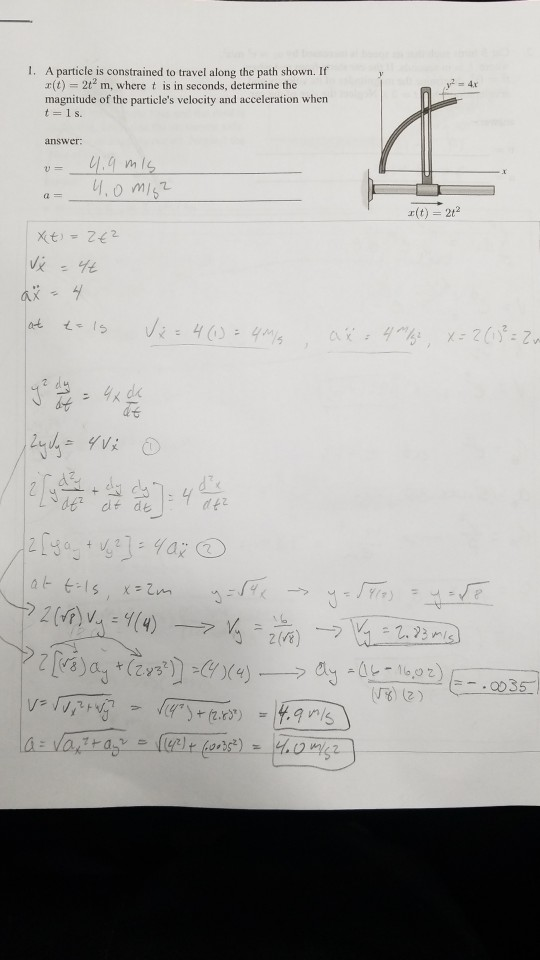 1. A particle is constrained to travel along the path shown. If
x(t) = 2t² m, where t is in seconds, determine the
magnitude of the particle's velocity and acceleration when
t = 1 s.
y
y² = 4x
x
x(t) = 2t²
answer:
v = 4.9 m/s
a = 4.0 m/s²
x(t) = 2t²
Vẋ = 4t
aẍ = 4
at t = 1s Vẋ = 4(1) = 4 m/s , aẍ = 4 m/s², x = 2(1)² = 2m
y² dy/dt = 4x dx/dt
2yVy = 4Vẋ ①
2[y d²y/dt² + dy/dt dy/dt] = 4 d²x/dt²
2[yay + Vy²] = 4aẍ ②
at t=1s, x=2m y=√4x → y=√4(2) = y=√8
2(√8)Vy = 4(4) → Vy = 16/2(√8) → Vy = 2.83 m/s
2[(√8)ay + (2.83²)] = (4)(4) → ay = (16 - 16.02)/(√8)(2) = -.0035
V = √Vx² + Vy² = √(4²) + (2.83²) = 4.9 m/s
a = √ax² + ay² = √(4²) + (.0035²) = 4.0 m/s²